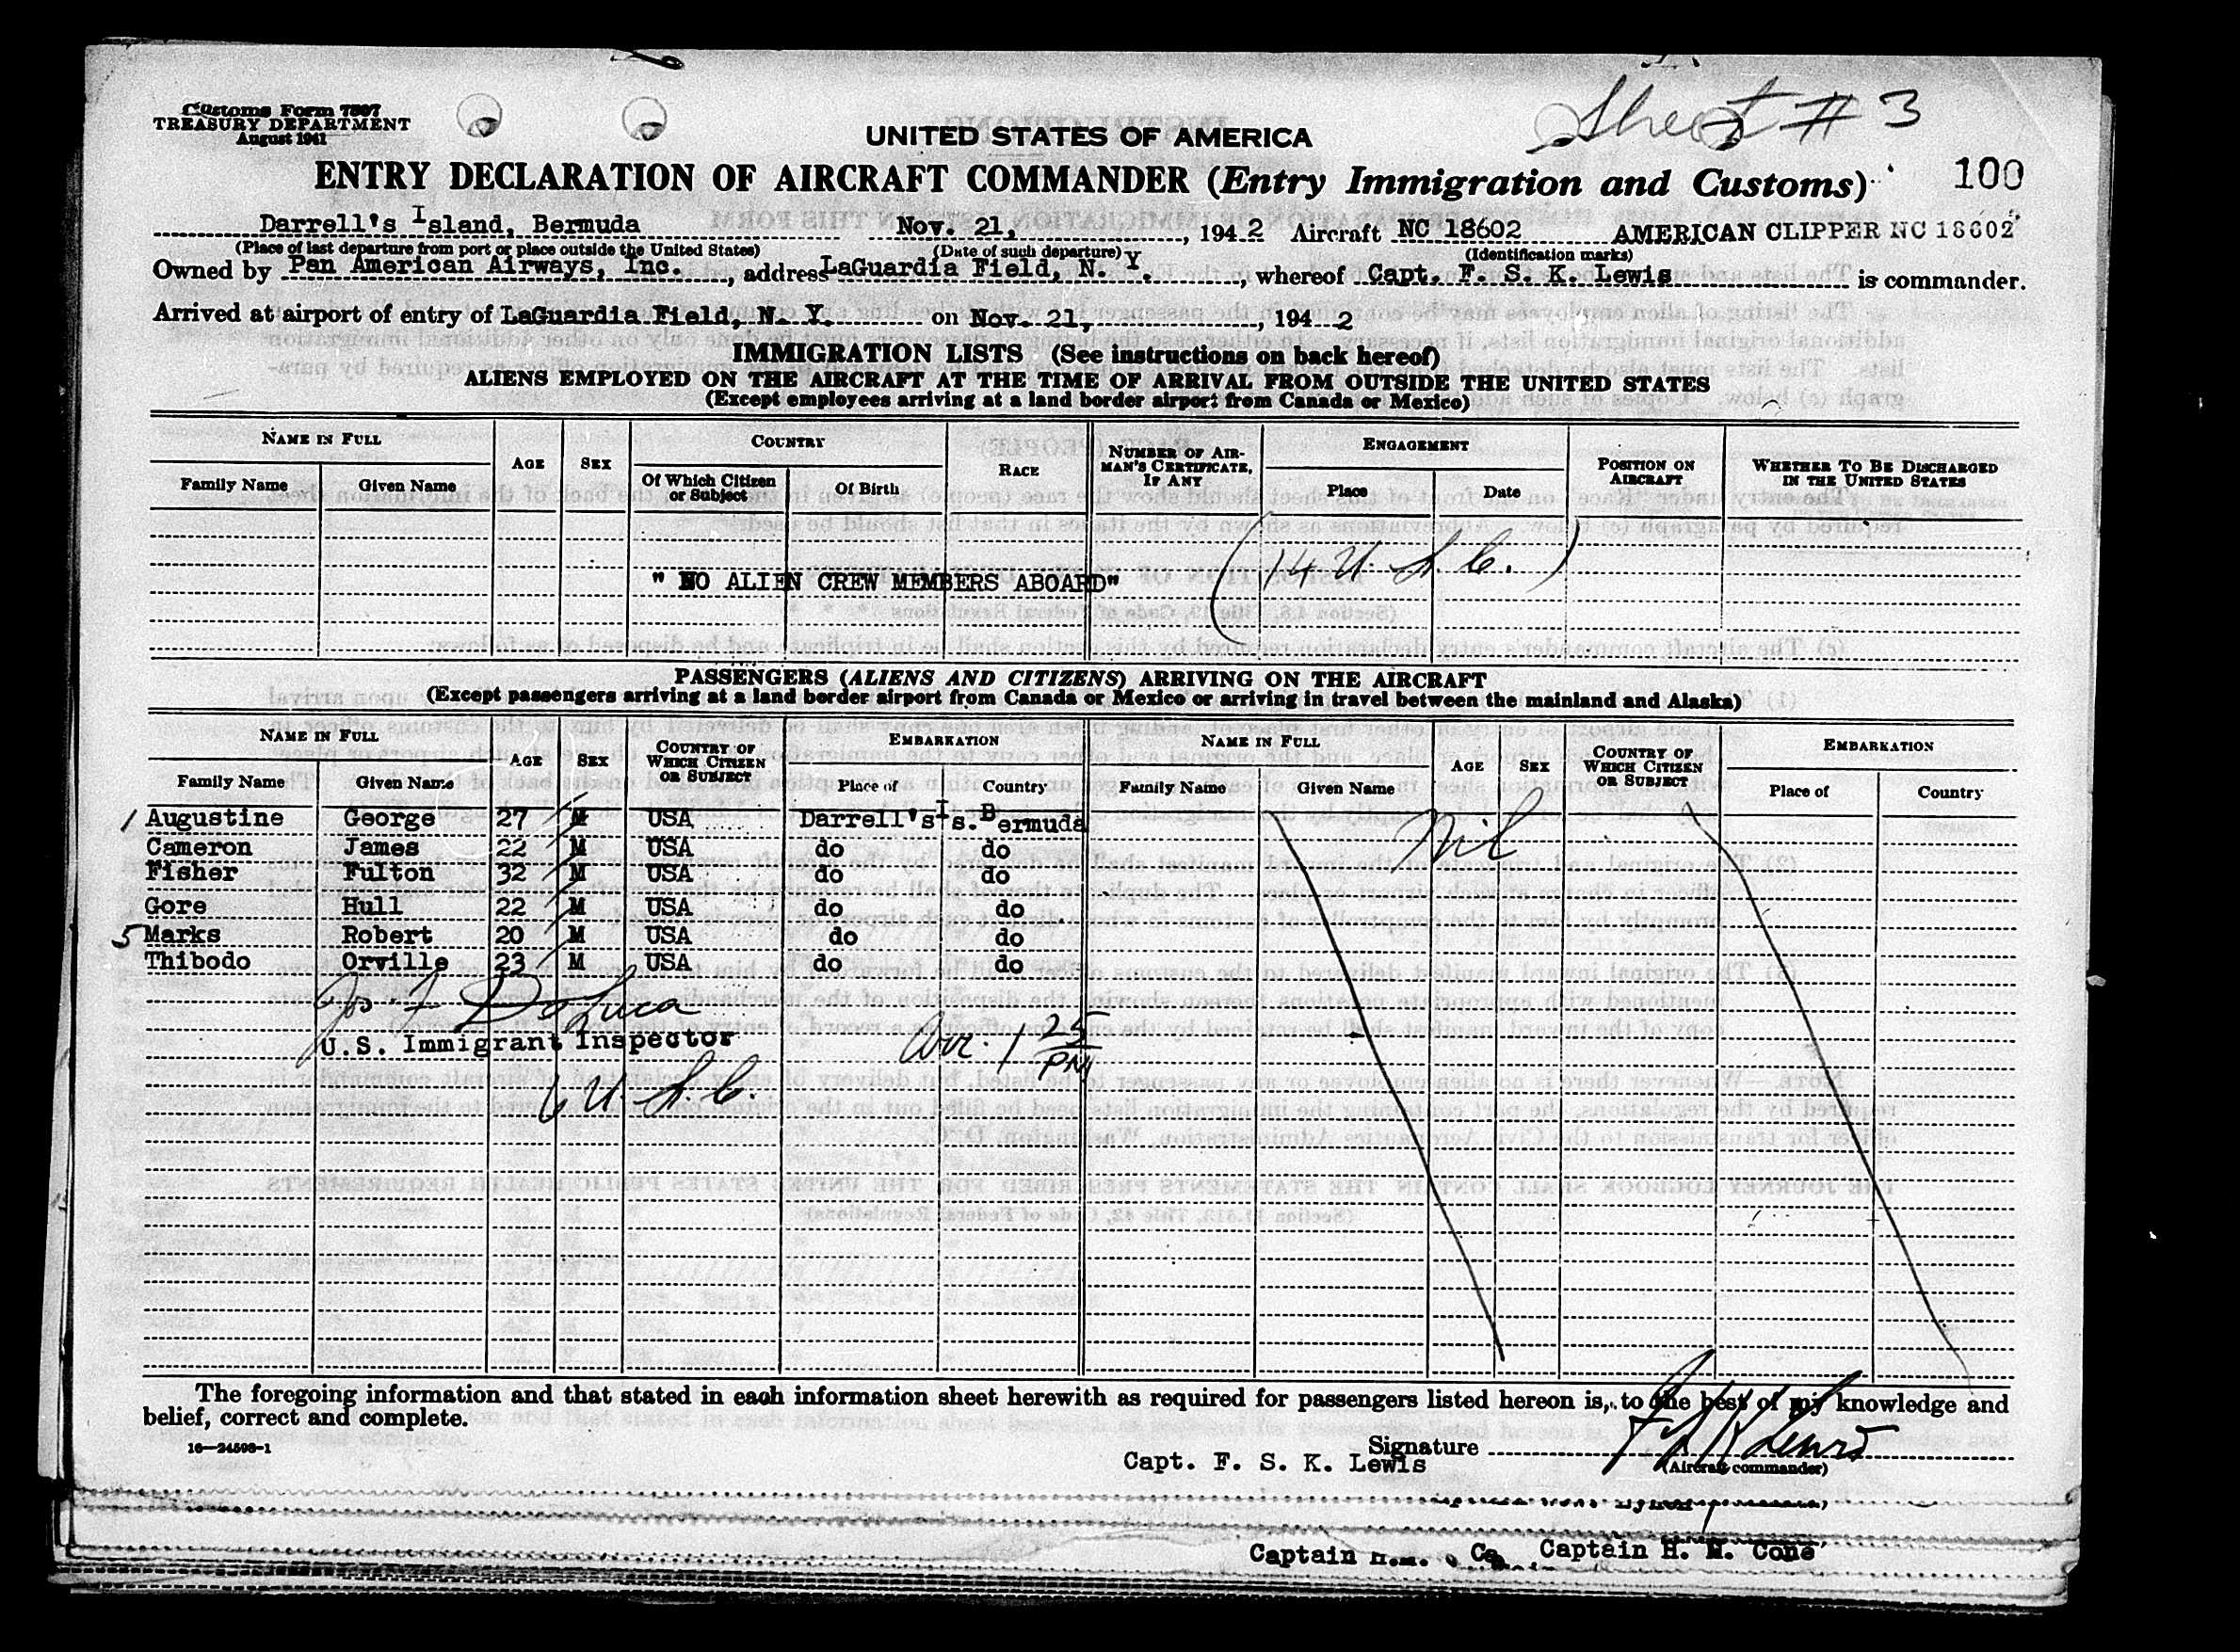 Sheet # 3
Customs Form 7507
TREASURY DEPARTMENT
August 1941
UNITED STATES OF AMERICA
ENTRY DECLARATION OF AIRCRAFT COMMANDER (Entry Immigration and Customs)
100
Darrell's Island, Bermuda Nov. 21, , 194 2 Aircraft NC 18602 AMERICAN CLIPPER NC 18602
(Place of last departure from port or place outside the United States) (Date of such departure) (Identification marks)
Owned by Pan American Airways, Inc. , address LaGuardia Field, N. Y. , whereof Capt. F. S. K. Lewis is commander.
Arrived at airport of entry of LaGuardia Field, N. Y. on Nov. 21, , 194 2
IMMIGRATION LISTS (See instructions on back hereof)
ALIENS EMPLOYED ON THE AIRCRAFT AT THE TIME OF ARRIVAL FROM OUTSIDE THE UNITED STATES
(Except employees arriving at a land border airport from Canada or Mexico)
NAME IN FULL AGE SEX COUNTRY RACE NUMBER OF AIRMAN'S CERTIFICATE, IF ANY ENGAGEMENT POSITION ON AIRCRAFT WHETHER TO BE DISCHARGED IN THE UNITED STATES
Family Name Given Name Of Which Citizen or Subject Of Birth Place Date
" NO ALIEN CREW MEMBERS ABOARD" (14 U. S. C.)
PASSENGERS (ALIENS AND CITIZENS) ARRIVING ON THE AIRCRAFT
(Except passengers arriving at a land border airport from Canada or Mexico or arriving in travel between the mainland and Alaska)
NAME IN FULL AGE SEX COUNTRY OF WHICH CITIZEN OR SUBJECT EMBARKATION NAME IN FULL AGE SEX COUNTRY OF WHICH CITIZEN OR SUBJECT EMBARKATION
Family Name Given Name Place of Country Family Name Given Name Place of Country
1 Augustine George 27 M USA Darrell's Is. Bermuda Nil
Cameron James 22 M USA do do
Fisher Fulton 32 M USA do do
Gore Hull 22 M USA do do
5 Marks Robert 20 M USA do do
Thibodo Orville 23 M USA do do
Jos. F. DeLuca
U.S. Immigrant Inspector Arr. 1 25 PM
6 U. S. C.
The foregoing information and that stated in each information sheet herewith as required for passengers listed hereon is, to the best of my knowledge and
belief, correct and complete.
16—24598-1
Signature F S K Lewis
Capt. F. S. K. Lewis (Aircraft commander)
Captain Captain H. M. Cone